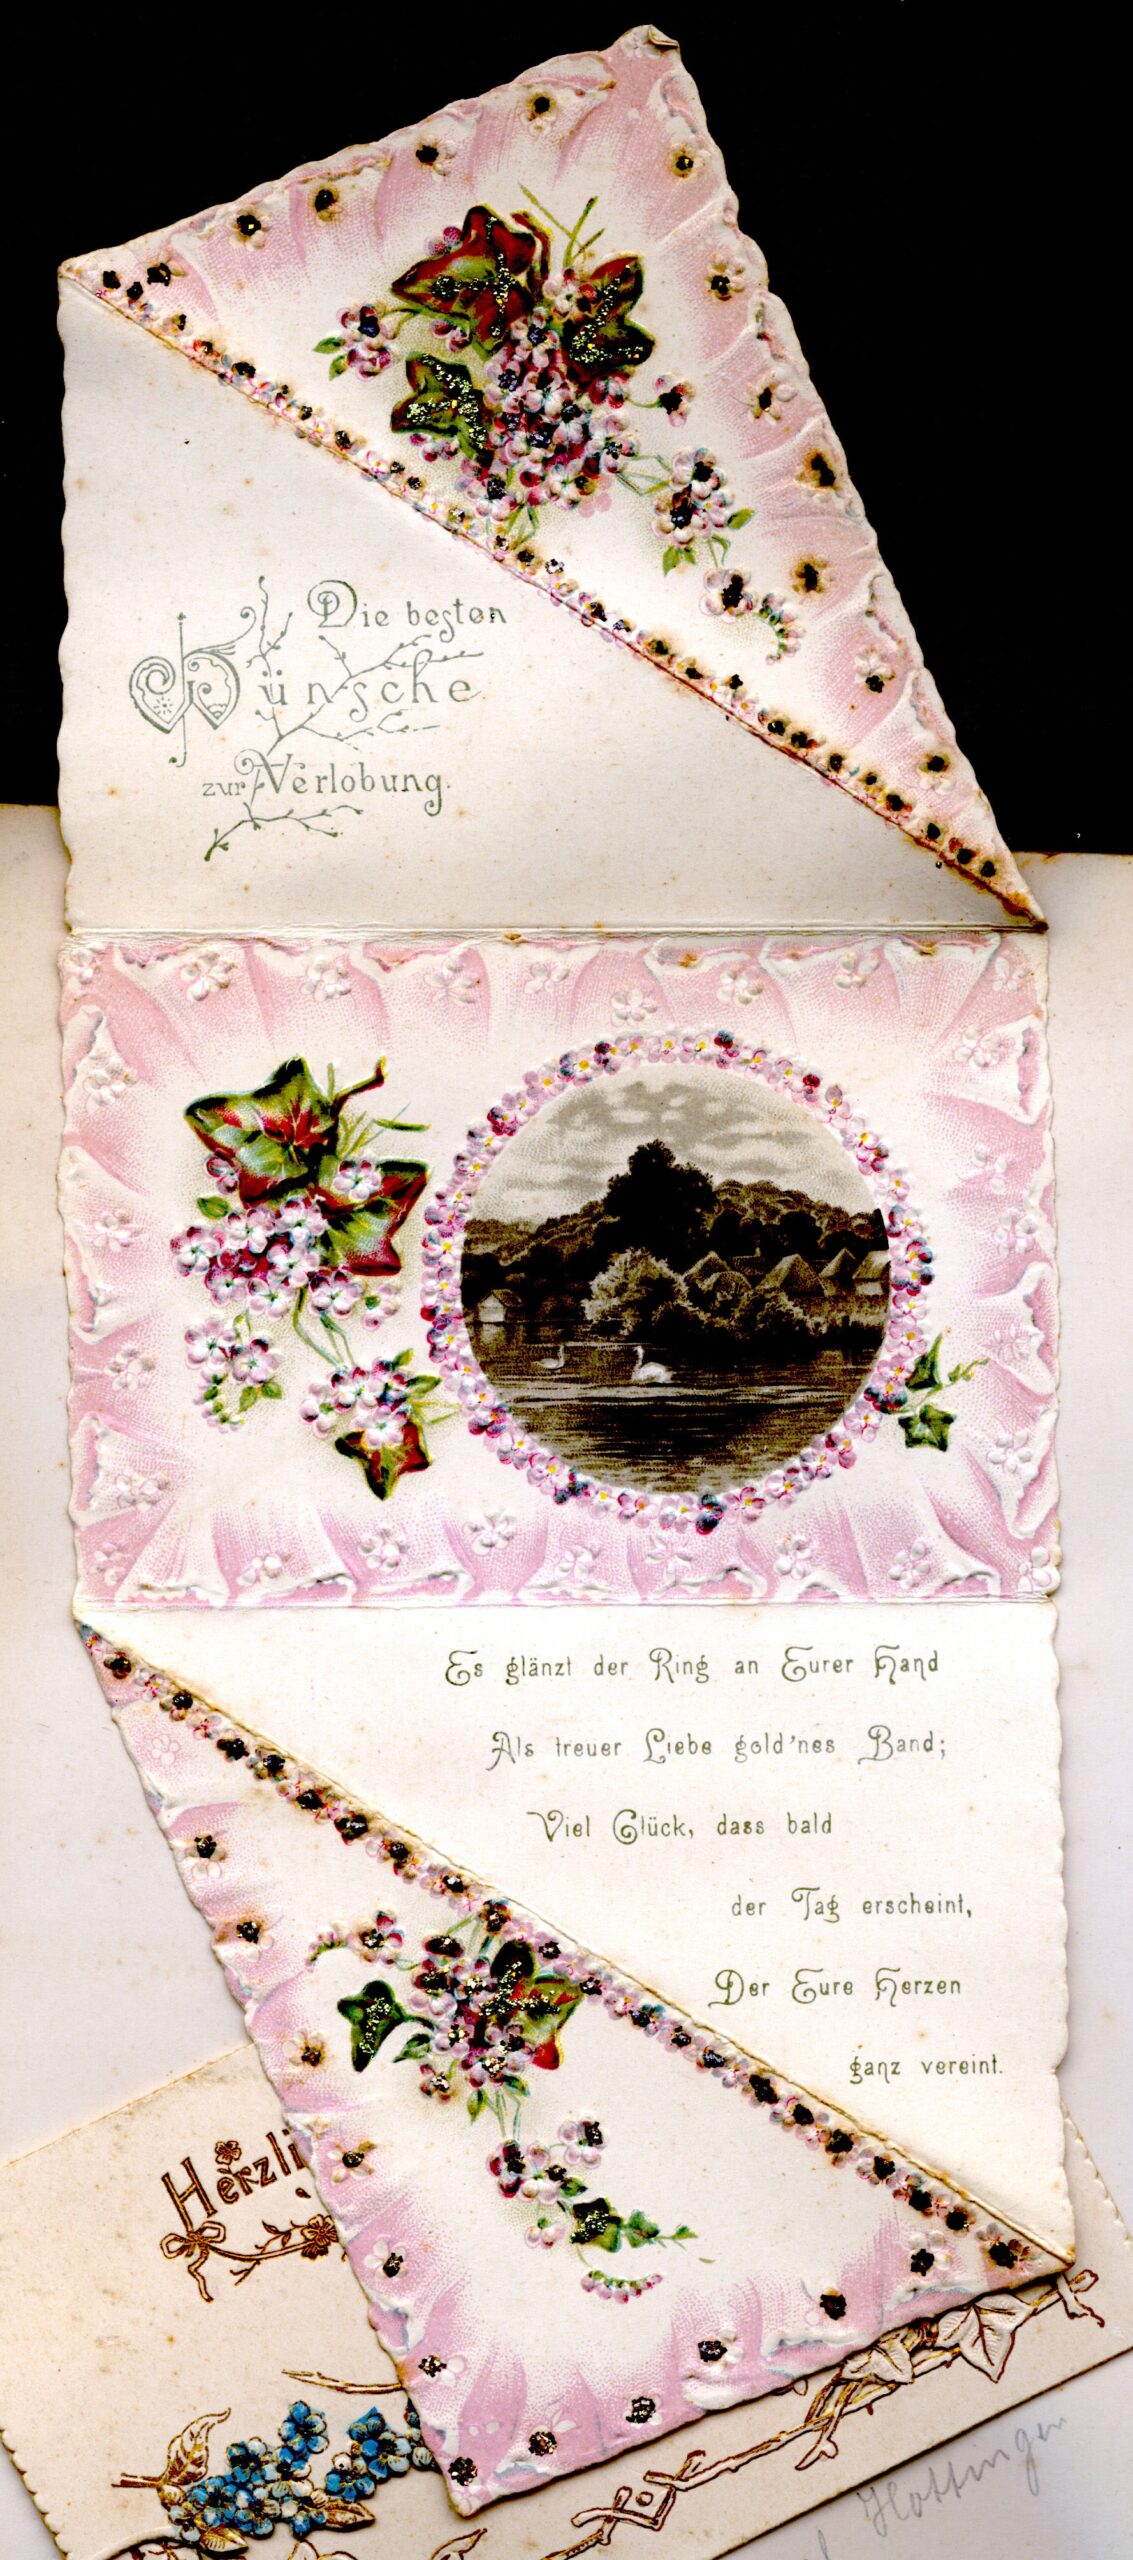 Die besten
Wünsche
zur Verlobung.
Es glänzt der Ring an Eurer Hand
Als treuer Liebe gold'nes Band;
Viel Glück, dass bald
der Tag erscheint,
Der Eure Herzen
ganz vereint.
Herzli
Hottingen